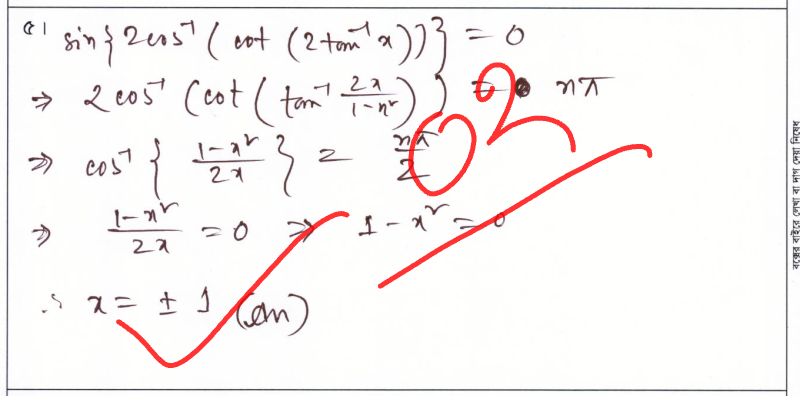 ১। sin{2cos⁻¹(cot(2tan⁻¹x))} = 0
⇒ 2cos⁻¹(cot(tan⁻¹ 2x/(1-x²))} = nπ
⇒ cos⁻¹{(1-x²)/2x} = nπ/2
02
⇒ (1-x²)/2x = 0 ⇒ 1-x² = 0
∴ x = ± 1 (Ans)
বক্সের বাইরে লেখা বা দাগ দেয়া নিষেধ